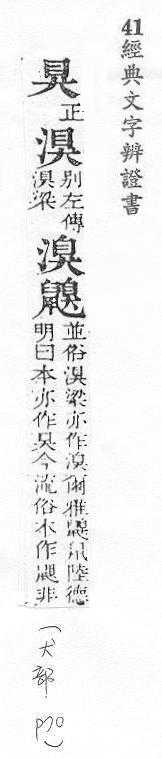 41
經典文字辨證書
狊
正
湨
別左傳
湨梁
溴鼳
並俗湨梁亦作溴爾雅鼳鼠陸德
明曰本亦作狊今流俗本作鼳非
(犬部 P70)